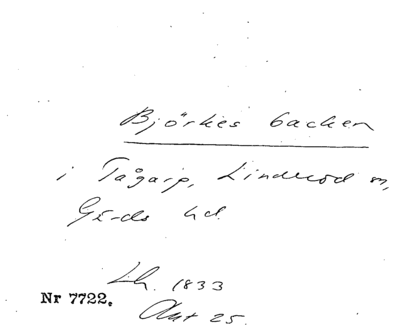 Björkes backen
i Tågarp, Linderöd sn,
Gärds hd.
Lh. 1833
Akt 25.
Nr 7722.